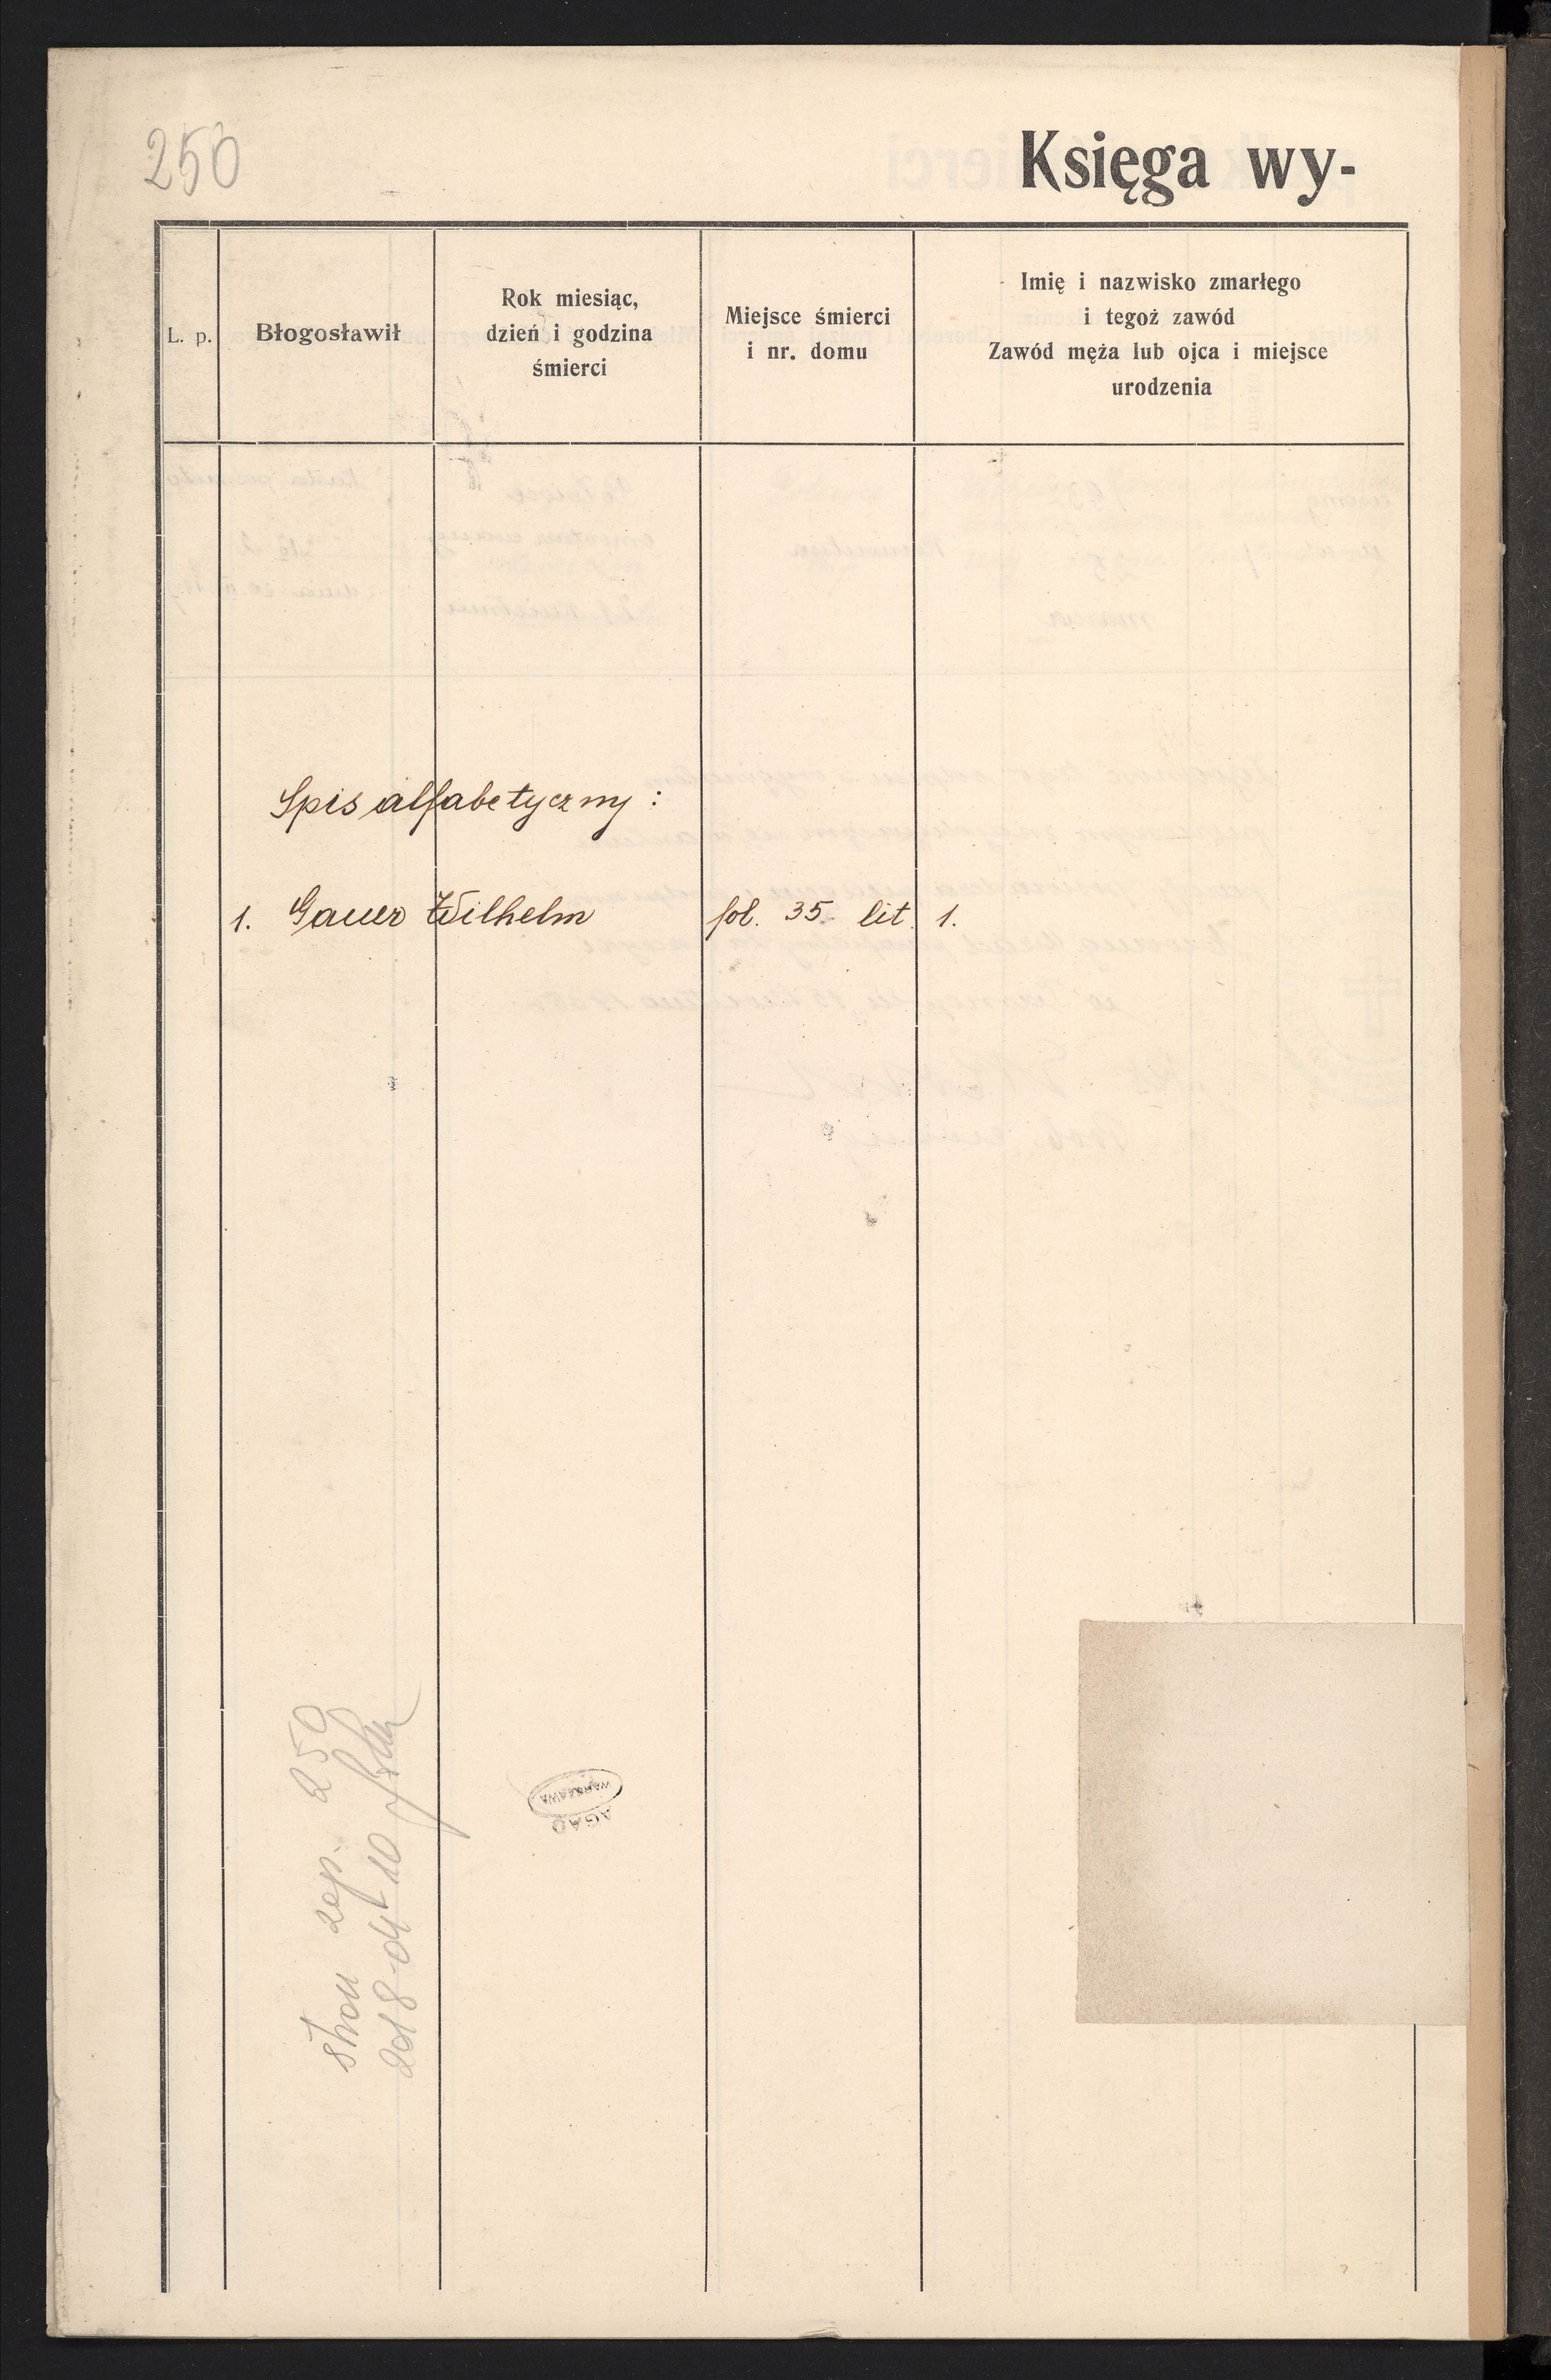 250
Księga wy-
L. p.
Błogosławił
Rok miesiąc,
dzień i godzina
śmierci
Miejsce śmierci
i nr. domu
Imię i nazwisko zmarłego
i tegoż zawód
Zawód męża lub ojca i miejsce
urodzenia
Spis alfabetyczny:
1. Gauer Wilhelm fol. 35 lit. 1.
stron zap. 250
2018-04-10
AGAD
WARSZAWA